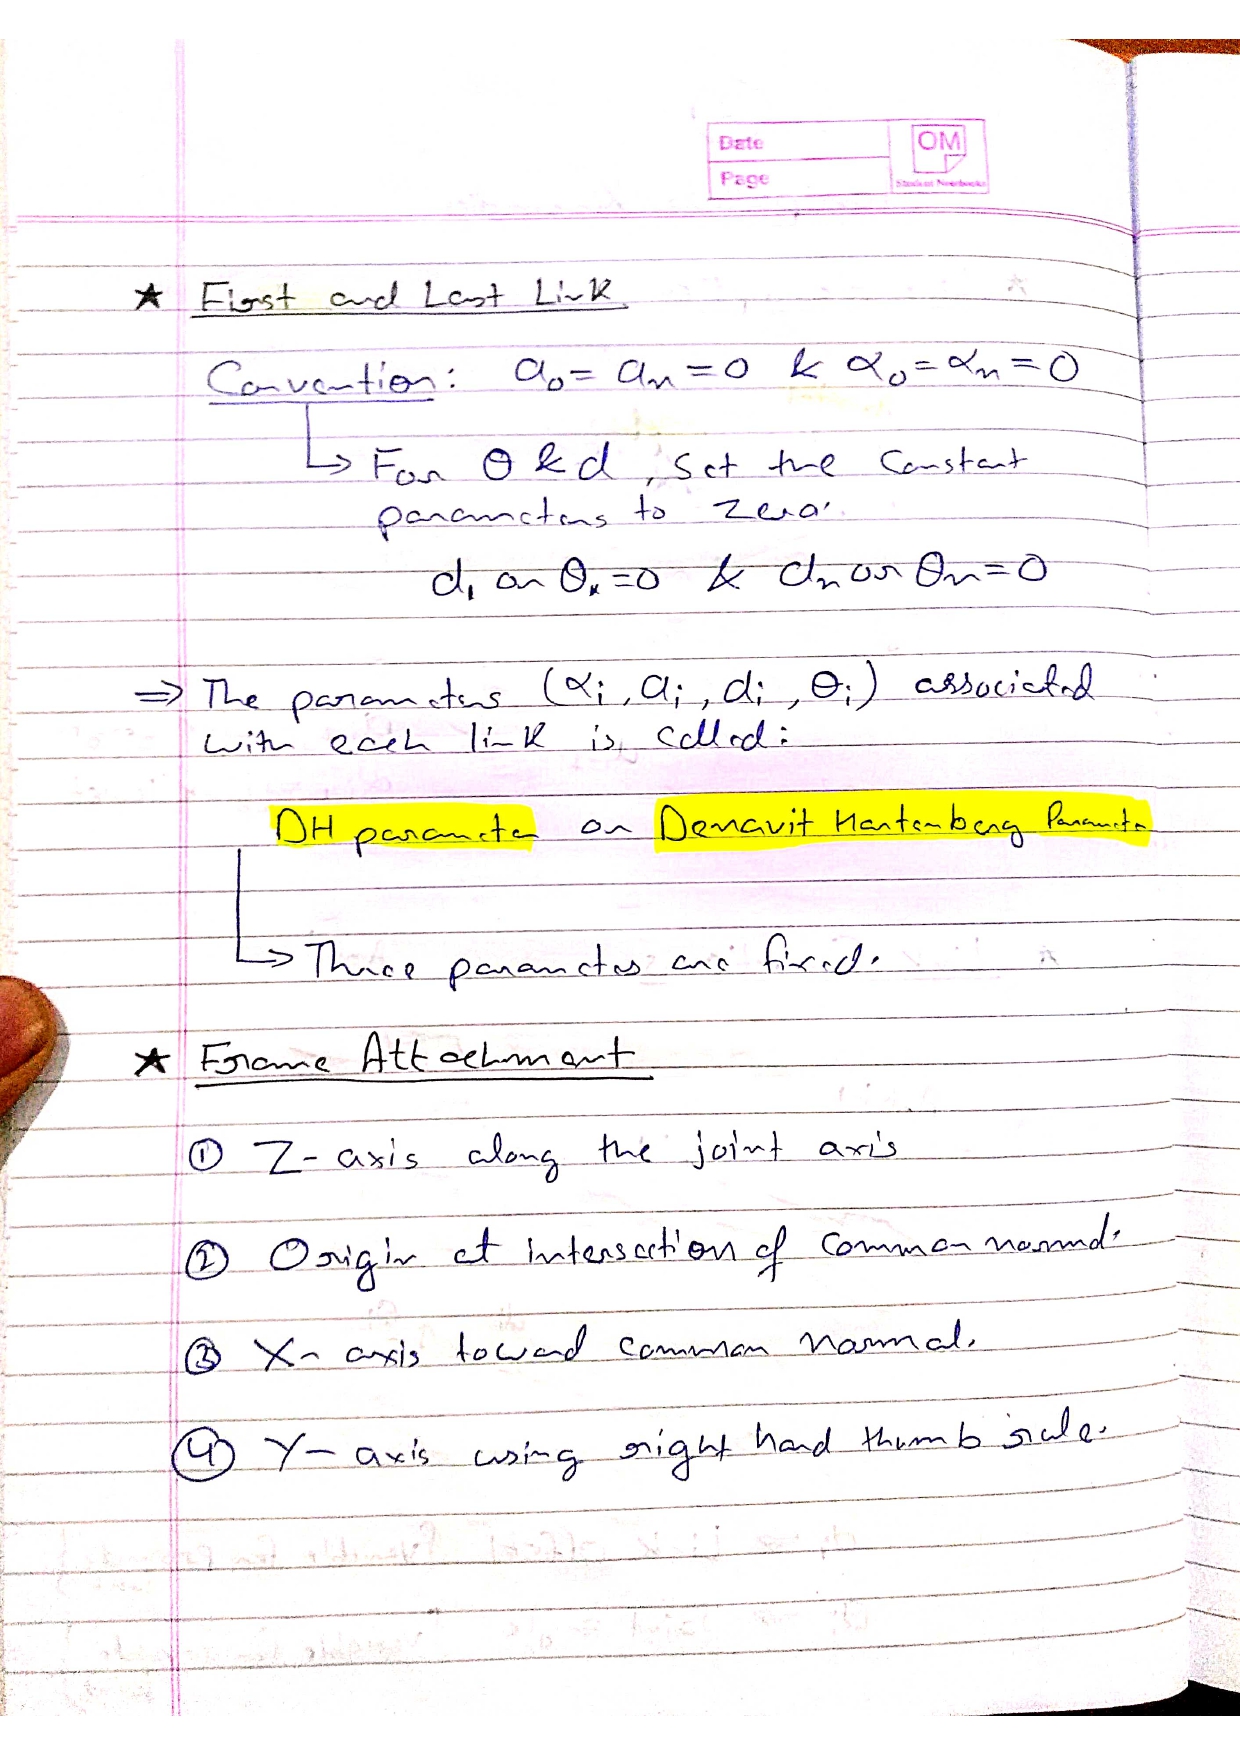 Date
OM
Page
Student Notebooks
★ First and Last Link
Convention: a₀ = aₙ = 0 & α₀ = αₙ = 0
↳ For θ & d, set the constant
parameters to zero.
d₁ or θ₁ = 0 & dₙ or θₙ = 0
⇒ The parameters (αᵢ, aᵢ, dᵢ, θᵢ) associated
with each link is called:
DH parameter or Denavit Hartenberg Parameter
↳ Three parameters are fixed.
★ Frame Attachment
① Z-axis along the joint axis
② Origin at intersection of common normal.
③ X-axis toward common normal.
④ Y-axis using right hand thumb rule.